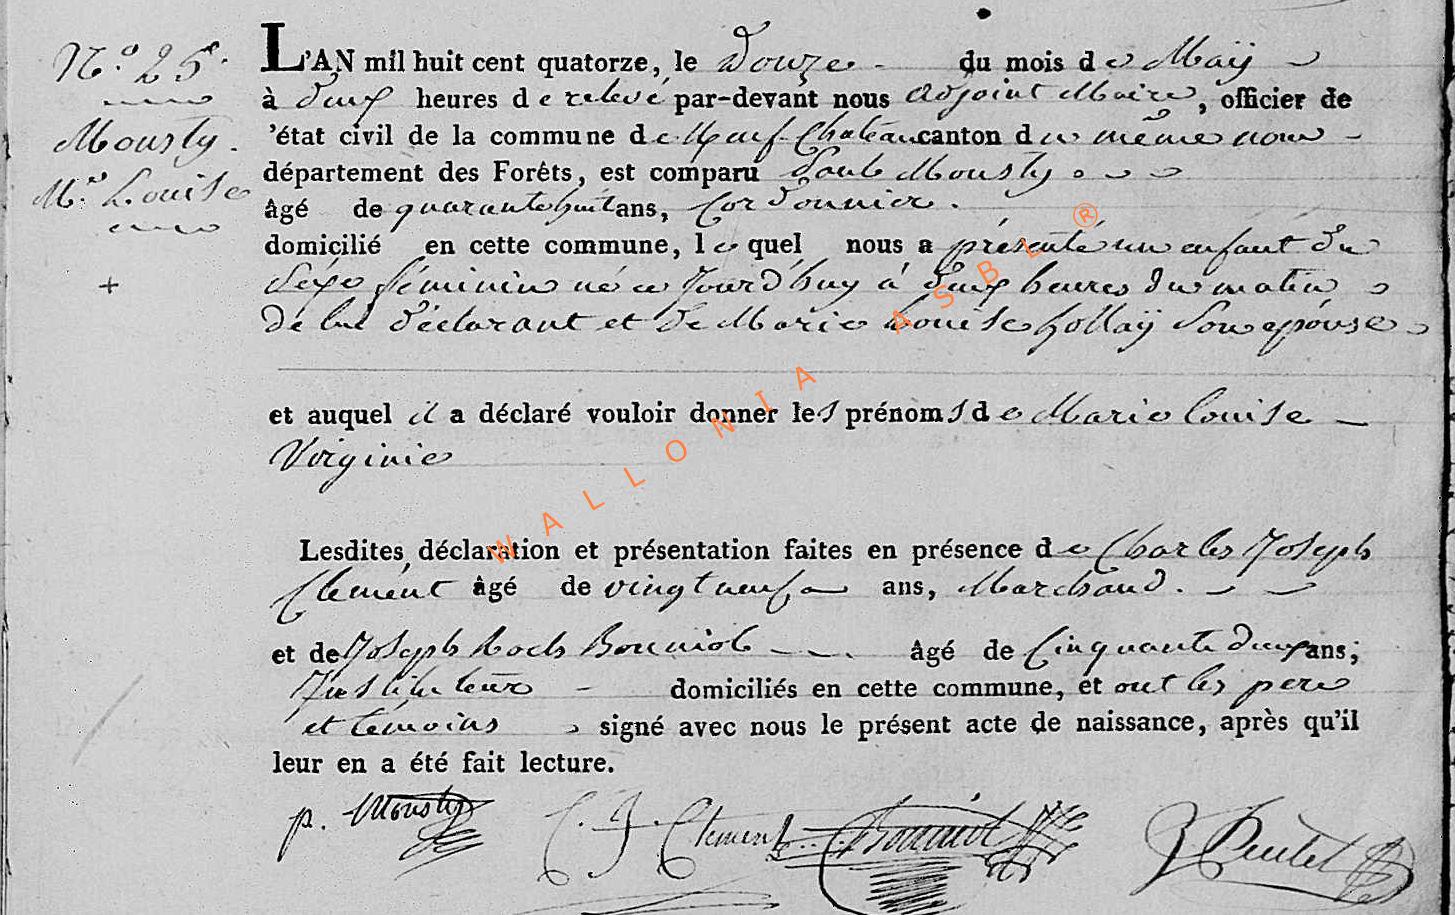 N.º 25.
Mousty.
M.ie Louise
L'AN mil huit cent quatorze, le Douze du mois de Maÿ
à deux heures de relevé par-devant nous adjoint Maire, officier de
'état civil de la commune de Neuf-Château canton du même nom
département des Forêts, est comparu Paul Mousty
âgé de quarante huit ans, Cordonnier.
domicilié en cette commune, lequel nous a présenté un enfant du
Séxe féminin né ce Jourd'huy à deux heures du matin
de lui déclarant et de Marie Louise hollaÿ Son epouse
et auquel il a déclaré vouloir donner les prénoms de Marie Louise
Virginie
Lesdites déclaration et présentation faites en présence de Charles Joseph
Clement âgé de vingt neuf ans, Marchand.
et de Joseph Roch Bouniol âgé de Cinquante deux ans;
Instituteur domiciliés en cette commune, et ont les pere
et témoins signé avec nous le présent acte de naissance, après qu'il
leur en a été fait lecture.
p. Mousty C. J. Clement Bouniol
WALLONIA ASBL ®